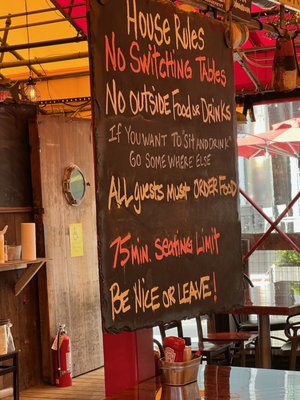 House Rules
No Switching Tables
No Outside Food or Drinks
If You Want To "Sit and Drink"
Go Some Where Else
All guests must Order Food
75 Min. Seating Limit
Be Nice or Leave!